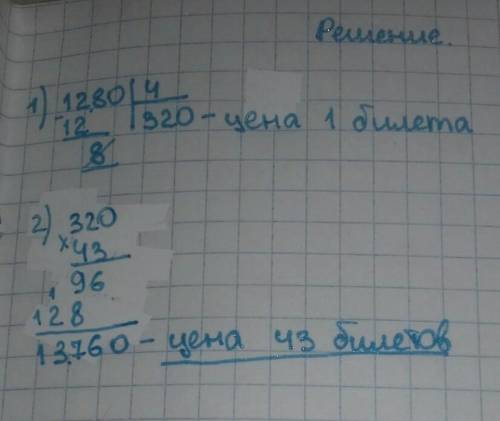 Решение.
1) -1280 | 4
12 320 - цена 1 билета
8
2) 320
x 43
96
128
13760 - цена 43 билетов